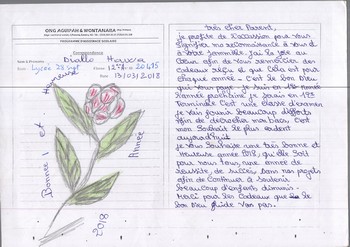 ONG AGUISSAN & MONTANARA
Correspondance
Diallo Hawa
Lycée 28 sept 12è 20495
13/03/2018
Bonne et Heureuse
Année
2018
très cher Parent,
je profite de l'occasion pour vous
signifier ma reconnaissance à vous et
à votre famille. J'ai la joie au
Cœur afin de vous remercier des
cadeaux reçu et que cela est pour
chaque année - C'est le bon Dieu
qui vous paye. je suis en 12è Année
l'année prochaine je serais en
Terminale. C'est une classe d'examen
je vais fournir beaucoup d'efforts
afin de décrocher mon bacs. C'est
mon souhait le plus ardent
aujourd'huit
je vous souhaite une très bonne et
Heureuse année 2018, qu'elle soit
pour nous tous, une année de
réussite, de succès dans nos projets
afin de continuer à soutenir
beaucoup d'enfants démunis -
Merci pour les cadeaux que le
bon Dieu vos pas.